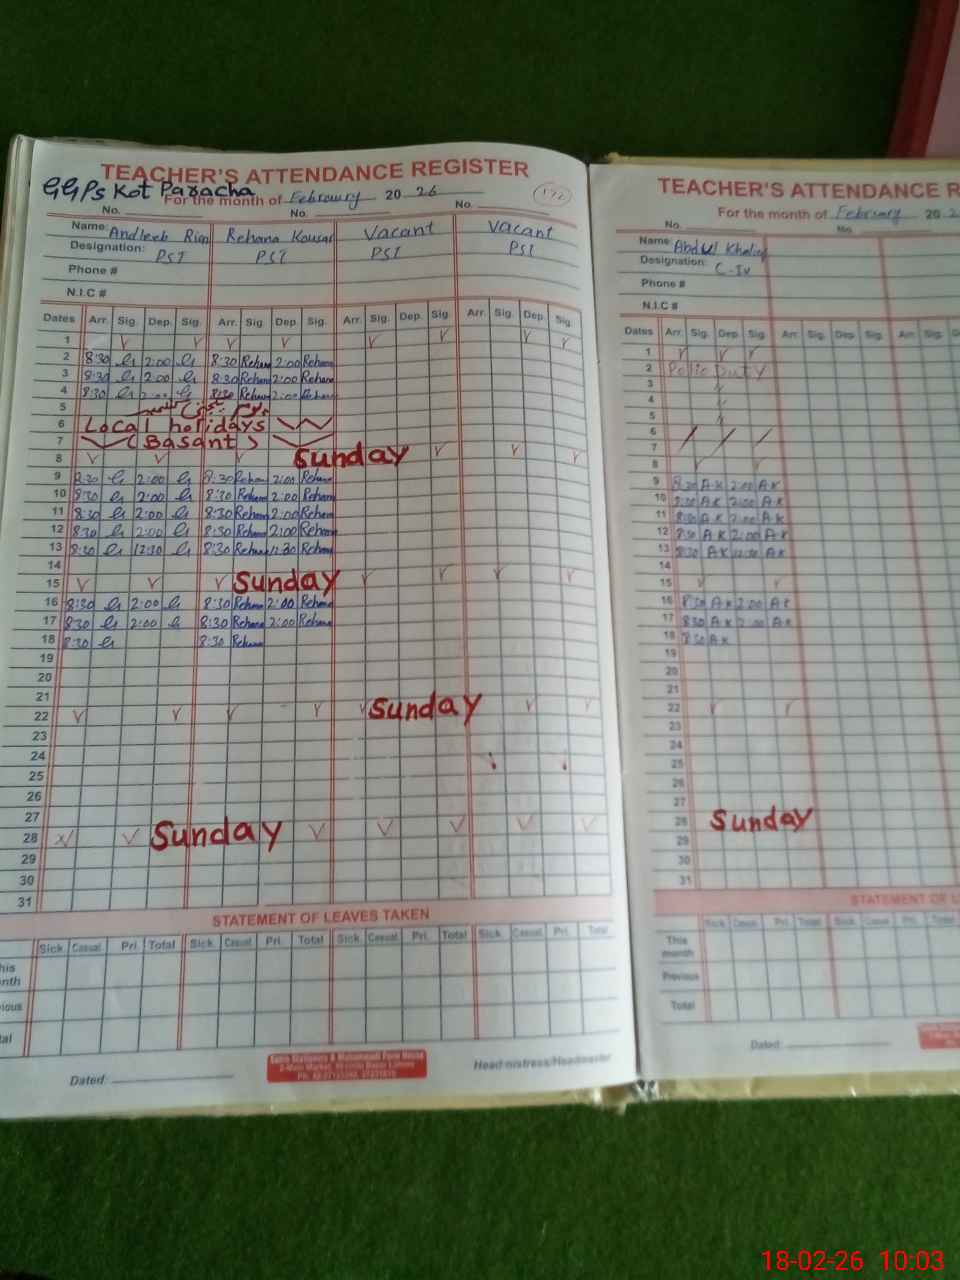 TEACHER'S ATTENDANCE REGISTER
GGPS Kot Paracha
For the month of Febroury 20 26
172
No. No. No.
Name: Andleeb Rehana Kousar Vacant Vacant
Designation: PST PST PST PST
Phone #
N.I.C #
Dates Arr. Sig. Dep. Sig. Arr. Sig. Dep. Sig. Arr. Sig. Dep. Sig. Arr. Sig. Dep. Sig.
1
2 8:30 2:00 8:30 Rehana 2:00 Rehana
3 8:30 2:00 8:30 Rehana 2:00 Rehana
4 8:30 2:00 8:30 Rehana 2:00 Rehana
5
6 Local holidays
7 (Basant)
8 Sunday
9 8:30 2:00 8:30 Rehana 2:00 Rehana
10 8:30 2:00 8:30 Rehana 2:00 Rehana
11 8:30 2:00 8:30 Rehana 2:00 Rehana
12 8:30 2:00 8:30 Rehana 2:00 Rehana
13 8:30 12:30 8:30 Rehana 12:30 Rehana
14
15 Sunday
16 8:30 2:00 8:30 Rehana 2:00 Rehana
17 8:30 2:00 8:30 Rehana 2:00 Rehana
18 8:30 8:30 Rehana
19
20
21
22 Sunday
23
24
25
26
27
28 Sunday
29
30
31
STATEMENT OF LEAVES TAKEN
Sick. Casual Pri. Total Sick. Casual Pri. Total Sick. Casual Pri. Total Sick. Casual Pri. Total
Dated:
Headmistress/Headmaster
TEACHER'S ATTENDANCE R
For the month of February 20 2
No. No.
Name: Abdul Khaliq
Designation: C-IV
Phone #
N.I.C #
Dates Arr. Sig. Dep. Sig. Arr. Sig. Dep. Sig. Arr. Sig.
1
2 Polio Duty
3
4
5
6
7
8
9 8:30 A.K 2:00 A.K
10 8:30 A.K 2:00 A.K
11 8:30 A.K 2:00 A.K
12 8:30 A.K 2:00 A.K
13 8:30 A.K 12:30 A.K
14
15
16 8:30 A.K 2:00 A.K
17 8:30 A.K 2:00 A.K
18 8:30 A.K
19
20
21
22
23
24
25
26
27
28 Sunday
29
30
31
STATEMENT OF L
Sick Casual Pri. Total Sick Casual Pri. Total
This month
Previous
Total
Dated:
18-02-26 10:03